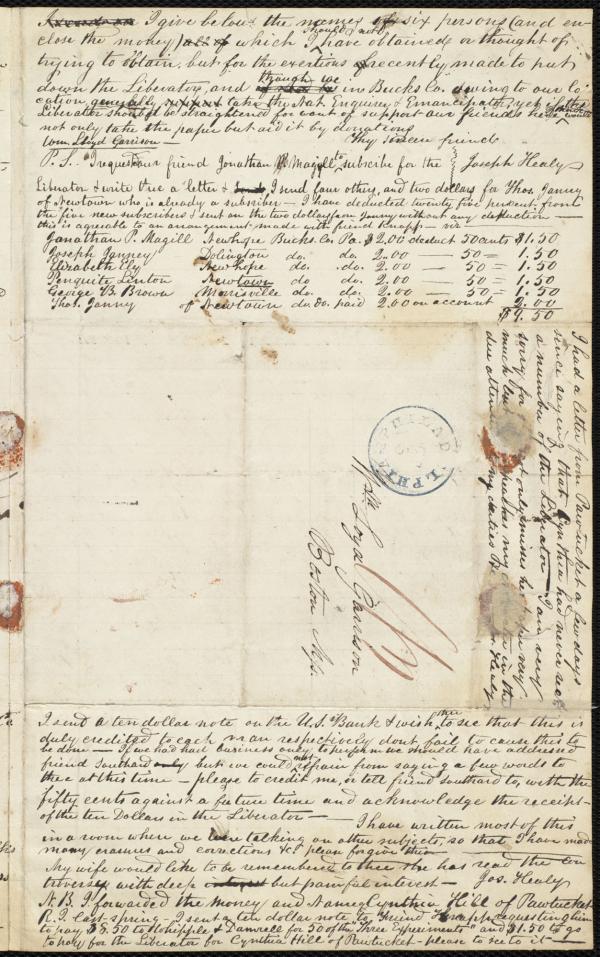 I give below the names of six persons (and en-
close the money) which I should not have obtained or thought of
trying to obtain, but for the exertions recently made to put
down the Liberator, and though we in Bucks Co. owing to our lo-
cation generally take the Nat. Enquirer & Emancipator yet if the
Liberator should be straightened for want of support our friends here would
not only take the paper but aid it by donations
Wm. Lloyd Garrison – Thy sincere friend
P.S. I request our friend Jonathan P. Magill to subscribe for the Joseph Healy
Liberator & write thee a letter & I send four others, and two dollars for Thos. Janney
of Newtown who is already a subscriber – I have deducted twenty five per cent. from
the five new subscribers & sent on the two dollars from Janney without any deduction –
this is agreeable to an arrangement made with friend Knapp – viz –
Jonathan P. Magill Newhope Bucks Co. Pa. $2.00 deduct 50 cents $1.50
Joseph Janney Dolington do. do. 2.00 — 50 = 1.50
Elizabeth Ely New hope do. do. 2.00 — 50 = 1.50
Penquite Linton Newtown do do. 2.00 — 50 = 1.50
George B. Brown Morrisville do. do. 2.00 — 50 = 1.50
Thos. Janney of Newtown do. do. paid 2.00 on account 2.00
$9.50
I had a letter from Pawtucket a few days
since saying that Cynthia had never rec
a number of the Liberator — I am very
sorry for
much
due my duties Healy
PHILADELPHIA
Wm. Loyd Garrison
Boston Mss.
I send a ten dollar note on the U.S. Bank & wish thee to see that this is
duly credited to each man respectively dont fail to cause this to
be done — If we had had business only to perform we should have addressed
friend Southard but we could not refrain from saying a few words to
thee at this time – please to credit me, or tell friend Southard to, with the
fifty cents against a future time and acknowledge the receipt
of the ten Dollars in the Liberator — I have written most of this
in a room where we were talking on other subjects, so that I have made
many erasures and corrections &c please forgive this –
My wife would like to be remembered to thee she has read the con
troversy with deep but painful interest — Jos. Healy
N.B. I forwarded the money and Name Cynthia Hill of Pawtucket
R.I. last spring – I sent a ten dollar note to "Friend Knapp" requesting him
to pay $8.50 to Whipple & Damrell for 50 of the "Three Experiments" and $1.50 to go
to pay for the Liberator for Cynthia Hill of Pawtucket – please to see to it —